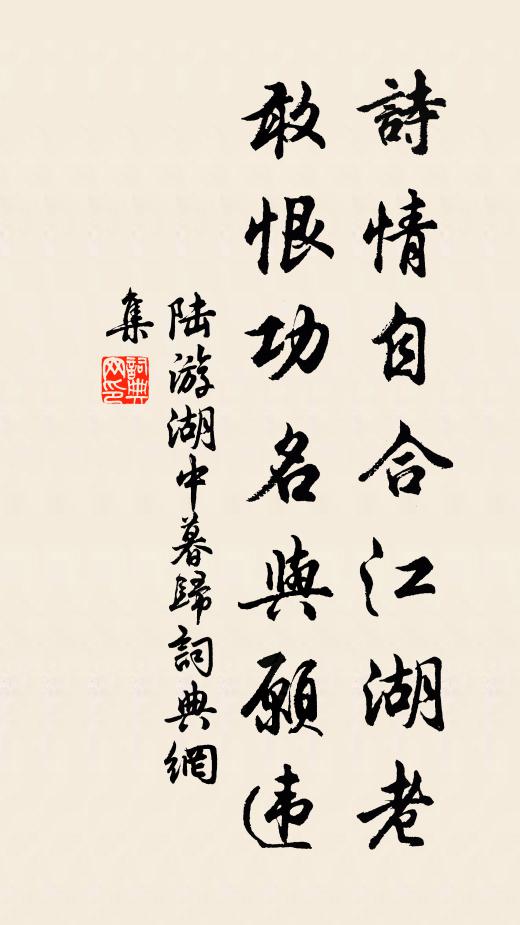 詩情自合江湖老
敢恨功名與願违
陆游湖中暮歸詞典網
集
詞典
网印